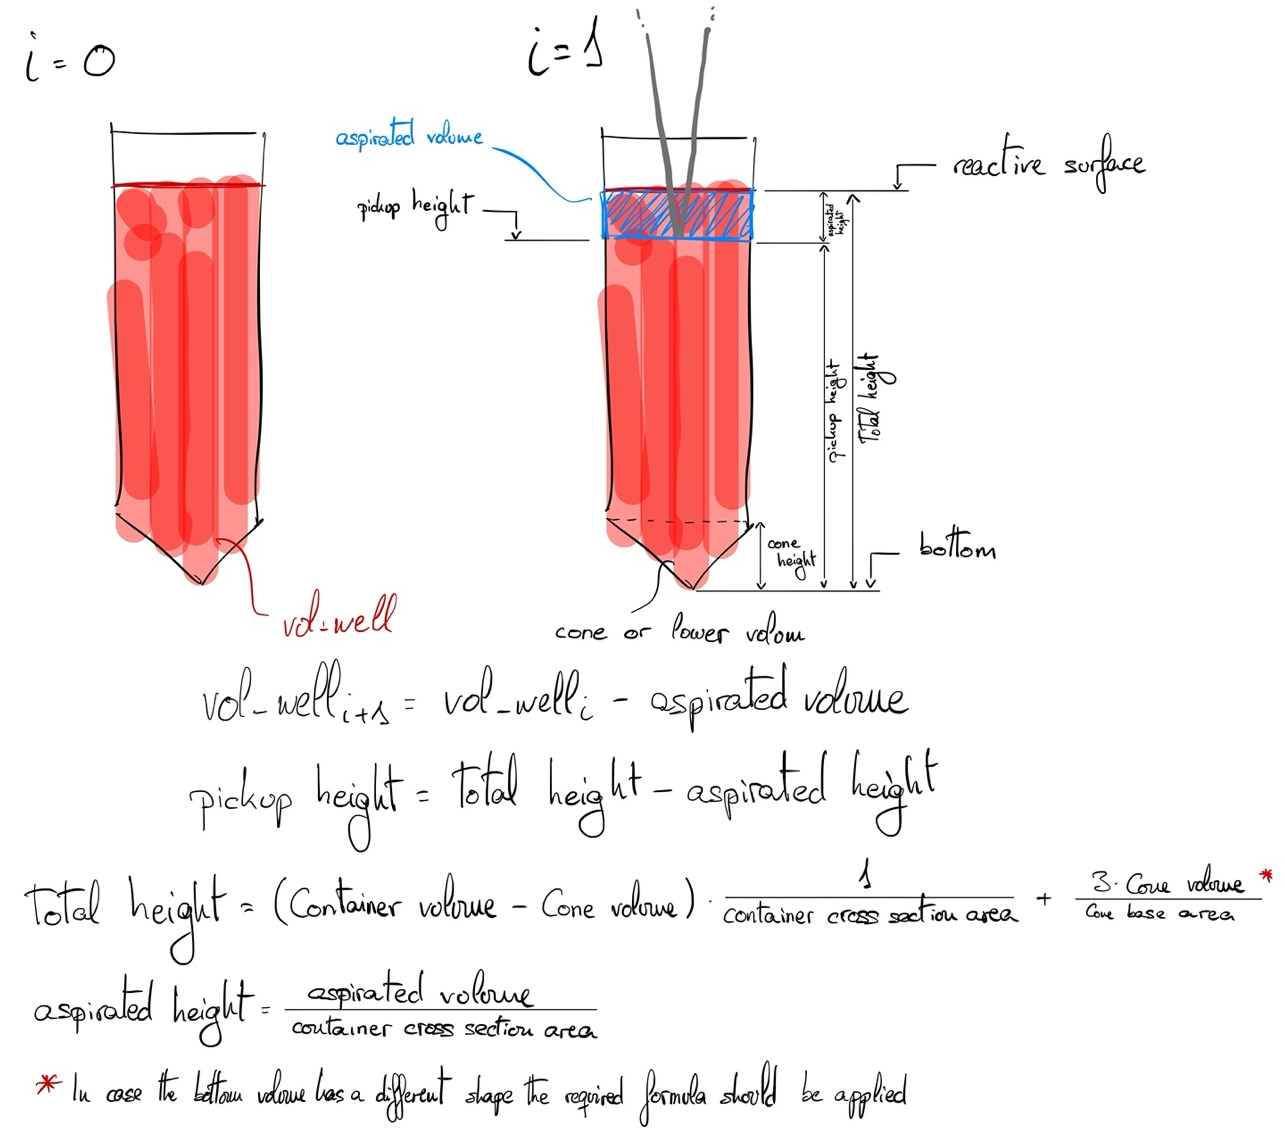 i = 0
i = 1
aspirated volume
pickup height
reactive surface
aspirated
height
pickup height
Total height
cone
height
bottom
vol-well
cone or lower volum
vol-well i+1 = vol-well i - aspirated volume
pickup height = Total height - aspirated height
Total height = (Container volume - Cone volume) · 1 / container cross section area + 3 · Cone volume / Cone base area *
aspirated height = aspirated volume / container cross section area
* In case the bottom volume has a different shape the required formula should be applied